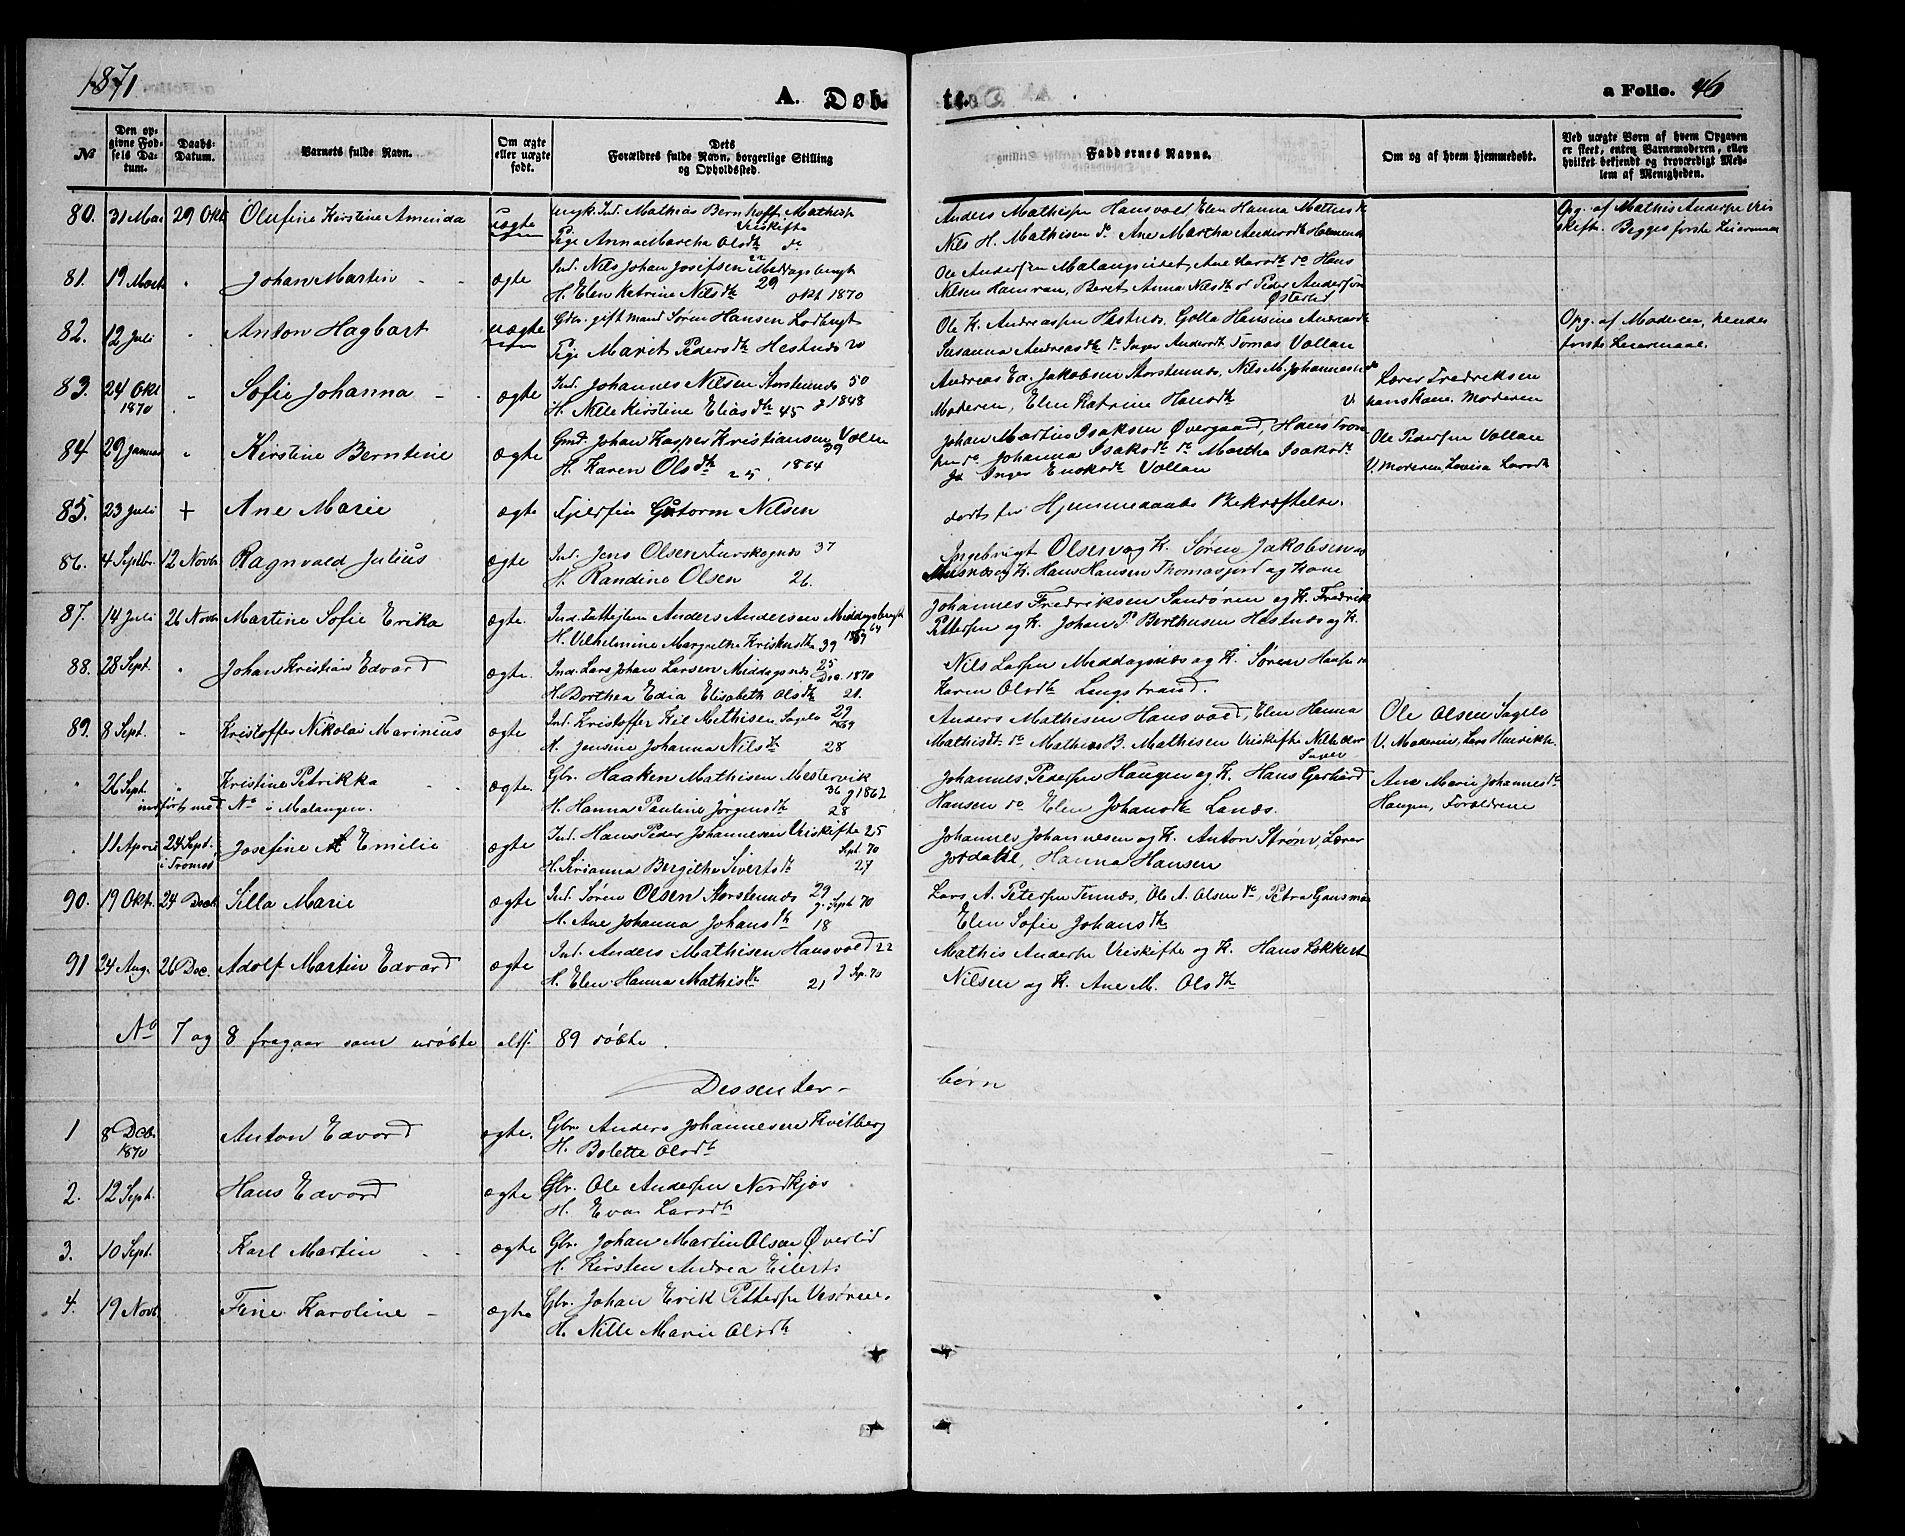 1871.
A. Døb-
te.
a Folio. 46
No
Den op-
givne Fød-
sels Da-
tum.
Daabs-
Datum.
Barnets fulde Navn.
Om ægte
eller uægte
født.
Dets
Forældres fulde Navn, borgerlige Stilling
og Opholdssted.
Faddernes Navne.
Om og af hvem hjemmedøbt.
Ved uægte Børn af hvem Opgaven
er skeet, enten Barnemoderen, eller
hvilket bekjendt og troværdigt Med-
lem af Menigheden.
80. 31 Mai 29 Okt Olufine Kirstine Aminda uægte Ungk. Ind. Mathias Bernhoff Mathisn
Vriskifte
Pige Anna Martha Olsdtr do 22
Anders Mathisen Hansvold, Elen Hanna Mathisdtr
Nils H. Mathisen do Ane Martha Andersdtr
Opg. af Mathis Andersen Vri
skifte. Begges første Leiermaal
81. 19 Marts " Johan Martin ægte Ind. Nils Johan Josefsen Meddagsbergt
H. Elen Katrine Nilsdtr 29 Okt 1870
Ole Andersen Malangseidet, Ane Larsdtr do Hans
Nilsen Hamran, Beret Anna Nilsdtr do Peder Andersen
Østerlid
82. 12 Juli " Anton Hagbart uægte Gbr. gift mand Søren Hansen Lodbergt
Pige Marit Pedersdtr Hestnæs 20
Ole K. Andreassen Hestnæs, Golla Hansine Andreasdtr
Susanna Andreasdtr do Inger Andersdtr Tomas Vollan
Opg. af Moderen, hendes
første Leiermaal.
83. 24 Okt
1870 " Sofie Johanna ægte Ind. Johannes Nilsen Storstennæs 50
H. Nille Kirstine Eliasdtr 45 g 1848
Andreas Ed. Jakobsen Storstennæs, Nils M. Johannesen do
Moderen, Elen Katrine Hansdtr
Lærer Fredriksen
V. hans Kone. Moderen
84 29 Januar " Kirstine Berntine ægte Gmd. Johan Kasper Kristiansen Vollan
39
H. Karen Olsdtr 25. 1864
Johan Martin Isaksen Øvergaard, Hans Tron
sen do Johanna Isaksdtr do Martha Isaksdtr
do Inger Enoksdtr Vollan
Ole Pedersen Vollan
V. Moderen, Lovisa Larsdtr
85. 23 Juli + Ane Marie ægte Fjeldfin Guttorm Nilsen
død før Hjemmedaabs Bekræftelse.
86. 4 Septbr. 12 Novbr. Ragnvald Julius ægte Ind. Jens Olsen Turskognæs 37
H. Randine Olsen 26.
Ingebrigt Olsen og K. Søren Jakobsen
og K. Hans Hansen Thomasjord og Kone
87. 14 Juli 26 Novbr Martine Sofie Erika ægte. Ind. Anders Andersen Middagsbergt
64
H. Vilhelmine Margrethe Kristensdtr 39 1869
Johannes Fredriksen Sandøren og K. Fredrik
Pettersen og K. Johan P. Berthusen Hestnæs og K.
88. 28 Sept. " Johan Kristian Edvard ægte. Ind. Lars Johan Larsen Middagsnæs 25
Dec. 1870
H. Dorthea Edia Elisabeth Olsdtr 21.
Nils Larsen Meddagsnæs og K. Søren Hansen
Karen Olsdtr Langstrand.
89. 8 Sept. " Kristoffer Nikolai Marinius ægte Ind. Kristoffer Kil Mathisen Sagelv 29
1869
H. Jensine Johanna Nilsdtr 28
Anders Mathisen Hansvold, Elen Hanna
Mathisdtr do Mathias B. Mathisen Vriskifte
Ole Olsen Sagelv
V. Moderen, Lars Henrikh.
" 26 Sept. " Kristine Petrikka ægte. Gbr. Haaken Mathisen Mestervik
36 g 1862
indført med No i Malangen. H. Hanna Pauline Jørgensdtr
28
Johannes Pedersen Haugen og K. Hans Gerhard
Hansen do Elen Johansdtr Lanæs.
Ane Marie Johannesdtr
Haugen, Forældrene
" 11 April 24 Sept.
i Tromsø Josefine Emilie ægte Ind. Hans Peder Johannesen Vriskifte 25
Sept. 70
H. Sirianna Bergithe Sivertsdtr 27
Johannes Johannesen og K. Anton Strøm, Lærer
Jordahl, Hanna Hansen
90. 19 Okt. 24 Decb. Silla Marie ægte Ind. Søren Olsen Storstennæs 29
g. Sept 70
H. Ane Johanna Johansdtr 18
Lars A. Petersen Tennæs, Ole A. Olsen do, Petra Gausnæs
Elen Sofie Johansdtr
91 24 Aug. 26 Dec. Adolf Martin Edvard ægte Ind. Anders Mathisen Hansvold 22
g Sep. 70
H. Elen Hanna Mathisdtr 21
Mathis Andersen Vriskifte og K. Hans Løkkert
Nilsen og K. Ane M. Olsdtr
No 7 og 8 fragaar som udøbte altsaa 89 døbte.
Dissenter-
børn
1 8 Dcb.
1870 Anton Edvard ægte. Gbr. Anders Johannesen Kvitberg
H. Bolette Olsdtr
2. 12 Sept. Hans Edvard ægte Gbr. Ole Andersen Nordkjos
H. Eva Larsdtr
3. 10 Sept. Karl Martin ægte Gbr. Johan Martin Olsen Øverlid
H. Kirsten Andrea Eilerts
4. 19 Novb. Fine Karoline ægte Gbr. Johan Erik Pettersen Vesøren.
H. Nille Marie Olsdtr